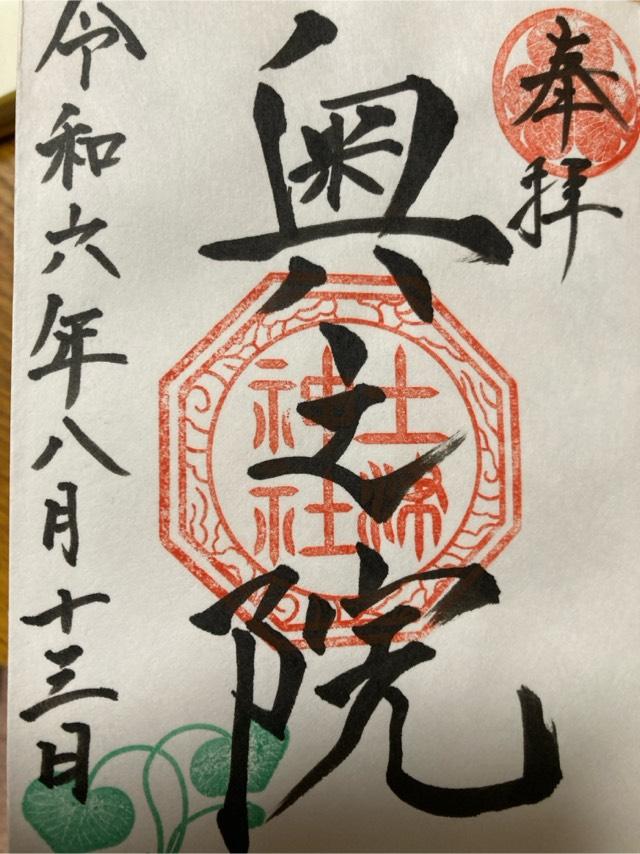 奉拝
奥之院
土津
神社
令和六年八月十三日